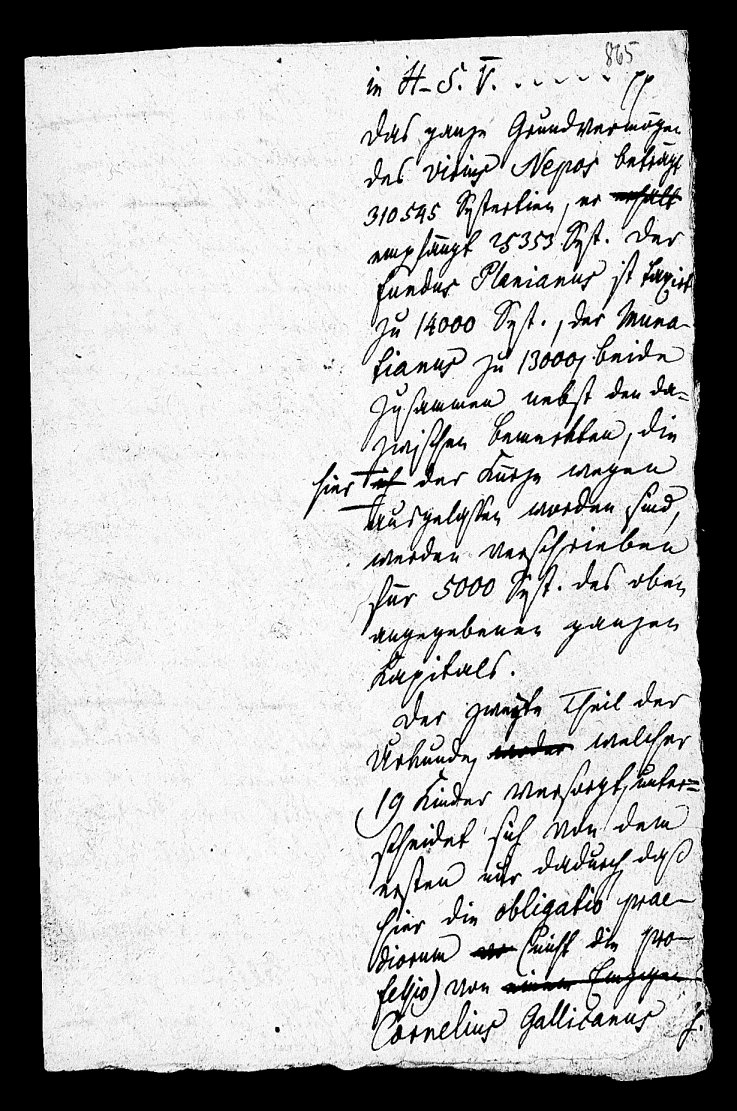 865
in H-S. V. . . . . . pp
Das ganze Grundvermögen
des Vibius Nepos beträgt
310545 Systertien, er erhält
empfängt 25353 Syst. Der
fundus Planianus ist taxirt
zu 14000 Syst., der Muna-
tianus zu 13000, beide
zusammen nebst den da=
zwischen bemerkten, die
hier der Kürze wegen
ausgelassen worden sind,
werden verschrieben
für 5000 Syst. des oben
angegebenen ganzen
Kapitals.
Der zweyte Theil der
Urkunde, welcher
19 Kinder versorgt, unter=
scheidet sich von dem
ersten nur dadurch daß
hier die obligatio prae-
diorum (nicht die pro-
fessio) von
Cornelius Gallicanus